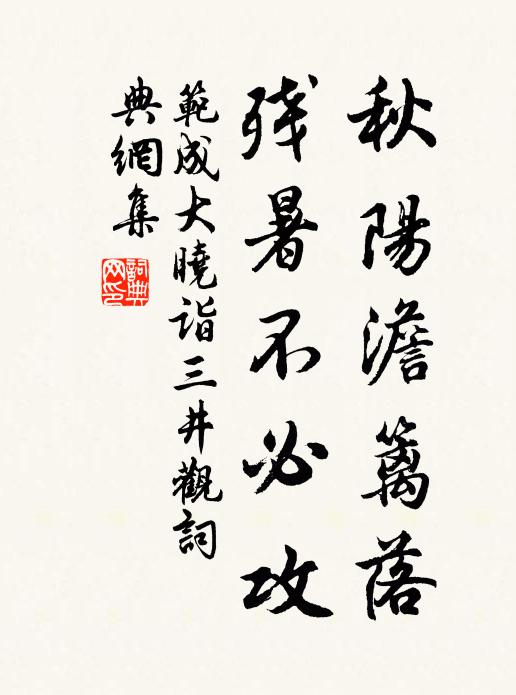 秋陽澹籬落
残暑不必攻
範成大曉詣三井觀詞
典網集
詞典
网印